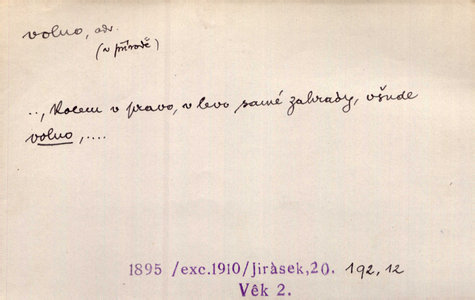 volno, adv.
(v přírodě)
.., Kolem v pravo, v levo samé zahrady, všude
volno,....
1895 /exc.1910/Jiràsek,20. 192,12
Vêk 2.